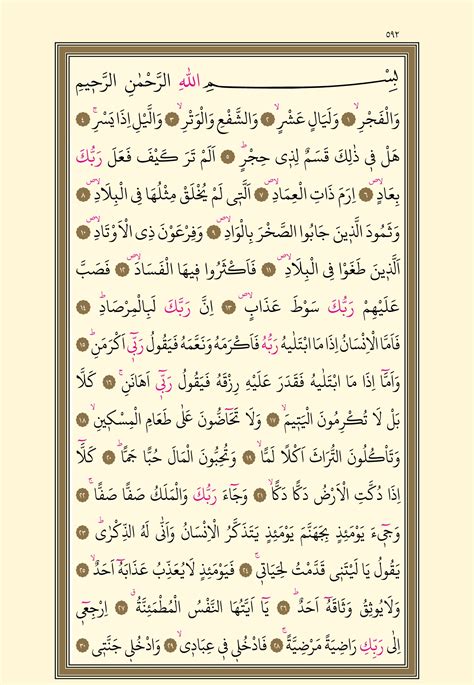 ٥٩٢
بِسْمِ اللّٰهِ الرَّحْمٰنِ الرَّحٖيمِ
وَالْفَجْرِۙ ١ وَلَيَالٍ عَشْرٍۙ ٢ وَالشَّفْعِ وَالْوَتْرِۙ ٣ وَالَّيْلِ اِذَا يَسْرِۚ ٤
هَلْ فٖي ذٰلِكَ قَسَمٌ لِذٖي حِجْرٍۜ ٥ اَلَمْ تَرَ كَيْفَ فَعَلَ رَبُّكَ
بِعَادٍۙ ٦ اِرَمَ ذَاتِ الْعِمَادِۙ ٧ اَلَّتٖي لَمْ يُخْلَقْ مِثْلُهَا فِي الْبِلَادِۙ ٨
وَثَمُودَ الَّذٖينَ جَابُوا الصَّخْرَ بِالْوَادِۙ ٩ وَفِرْعَوْنَ ذِي الْاَوْتَادِۙ ١٠
اَلَّذٖينَ طَغَوْا فِي الْبِلَادِۙ ١١ فَاَكْثَرُوا فٖيهَا الْفَسَادَۙ ١٢ فَصَبَّ
عَلَيْهِمْ رَبُّكَ سَوْطَ عَذَابٍۙ ١٣ اِنَّ رَبَّكَ لَبِالْمِرْصَادِۜ ١٤
فَاَمَّا الْاِنْسَانُ اِذَا مَا ابْتَلٰيهُ رَبُّهُ فَاَكْرَمَهُ وَنَعَّمَهُ فَيَقُولُ رَبّٖٓي اَكْرَمَنِۜ ١٥
وَاَمَّٓا اِذَا مَا ابْتَلٰيهُ فَقَدَرَ عَلَيْهِ رِزْقَهُ فَيَقُولُ رَبّٖٓي اَهَانَنِۚ ١٦ كَلَّا
بَلْ لَا تُكْرِمُونَ الْيَتٖيمَۙ ١٧ وَلَا تَحَٓاضُّونَ عَلٰى طَعَامِ الْمِسْكٖينِۙ ١٨
وَتَأْكُلُونَ التُّرَاثَ اَكْلًا لَمًّاۙ ١٩ وَتُحِبُّونَ الْمَالَ حُبًّا جَمًّاۜ ٢٠ كَلَّٓا
اِذَا دُكَّتِ الْاَرْضُ دَكًّا دَكًّاۙ ٢١ وَجَٓاءَ رَبُّكَ وَالْمَلَكُ صَفًّا صَفًّاۚ ٢٢
وَجٖٓيءَ يَوْمَئِذٍ بِجَهَنَّمَ يَوْمَئِذٍ يَتَذَكَّرُ الْاِنْسَانُ وَاَنّٰى لَهُ الذِّكْرٰىۜ ٢٣
يَقُولُ يَا لَيْتَنٖي قَدَّمْتُ لِحَيَاتٖيۚ ٢٤ فَيَوْمَئِذٍ لَا يُعَذِّبُ عَذَابَهُٓ اَحَدٌۙ ٢٥
وَلَا يُوثِقُ وَثَاقَهُٓ اَحَدٌۜ ٢٦ يَٓا اَيَّتُهَا النَّفْسُ الْمُطْمَئِنَّةُۗ ٢٧ اِرْجِعٖٓي
اِلٰى رَبِّكِ رَاضِيَةً مَرْضِيَّةًۚ ٢٨ فَادْخُلٖي فٖي عِبَادٖيۙ ٢٩ وَادْخُلٖي جَنَّتٖي ٣٠